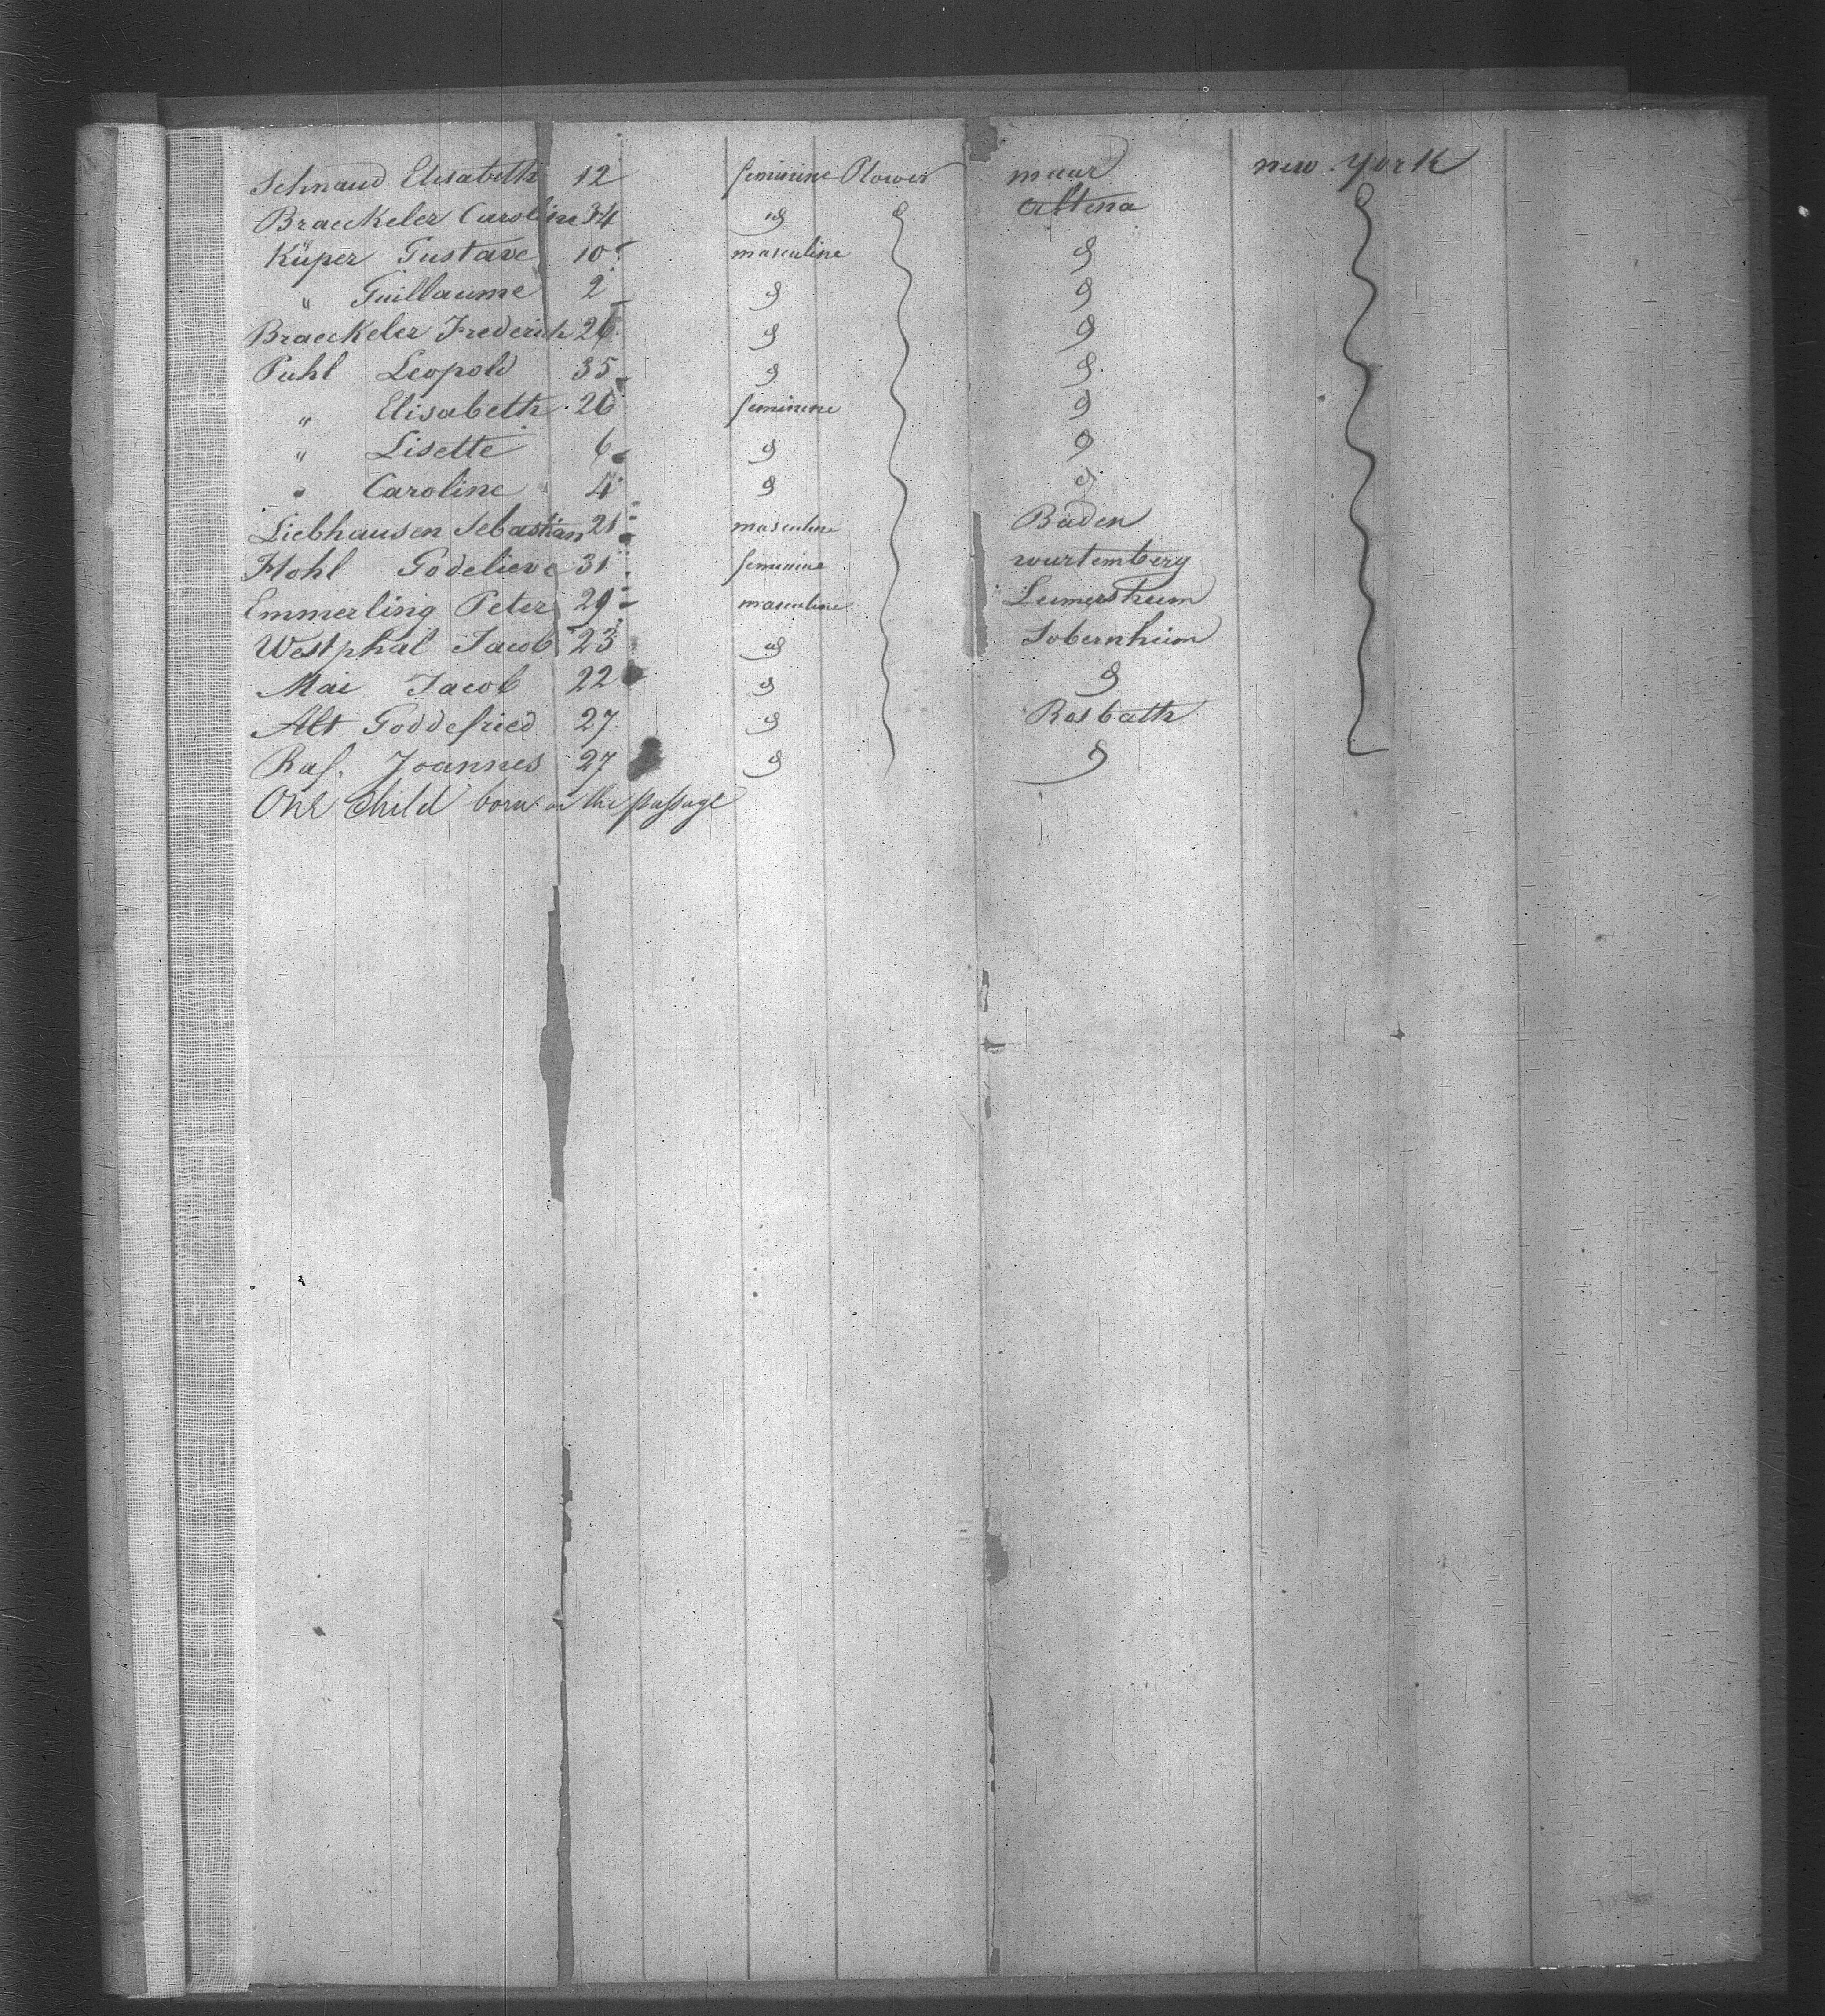 Schnaud Elisabeth 12 feminine Plower maar new York
Braeckeler Caroline 34 " Altena
Küper Gustave 10 masculine "
" Guillaume 2 " "
Braeckeler Frederich 26 " "
Puhl Leopold 35 " "
" Elisabeth 26 feminine "
" Lisette 6 " "
" Caroline 4 " "
Liebhausen Sebastian 21 masculine Baden
Hohl Godelieve 31 feminine wurtemberg
Emmerling Peter 29 masculine
Westphal Jacob 23 " Sobernheim
Mai Jacob 22 " "
Alt Goddefried 27 " Rosbath
Raf. Joannes 27 " "
One Child born on the passage